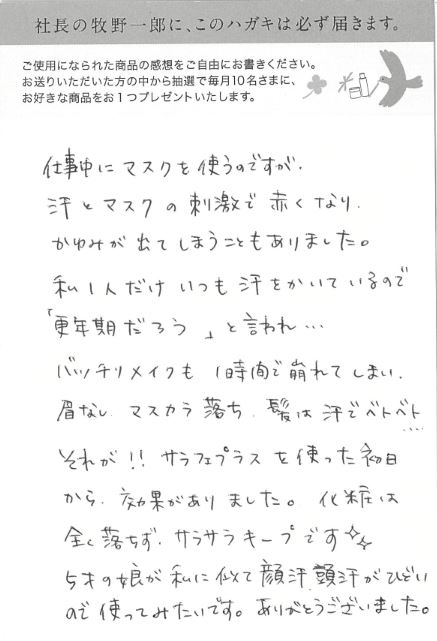 社長の牧野一郎に、このハガキは必ず届きます。
ご使用になられた商品の感想をご自由にお書きください。
お送りいただいた方の中から抽選で毎月10名さまに、
お好きな商品をお1つプレゼントいたします。
仕事中にマスクを使うのですが、
汗とマスクの刺激で赤くなり、
かゆみが出てしまうこともありました。
私1人だけいつも汗をかいているので
「更年期だろう」と言われ…
バッチリメイクも1時間で崩れてしまい、
眉なし、マスカラ落ち、髪は汗でベトベト…
それが!! サラフェプラスを使った初日
から、効果がありました。化粧は
全く落ちず、サラサラキープです
5才の娘が私に似て顔汗頭汗がひどい
ので使ってみたいです。ありがとうございました。